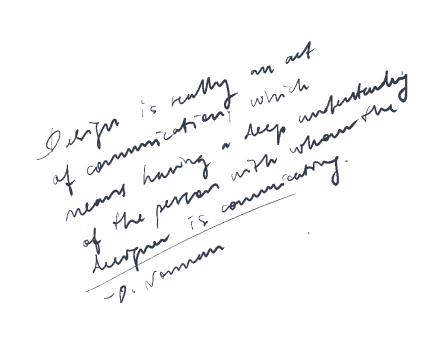 Design is really an act
of communication, which
means having a deep understanding
of the person with whom the
designer is communicating.
-D. Norman